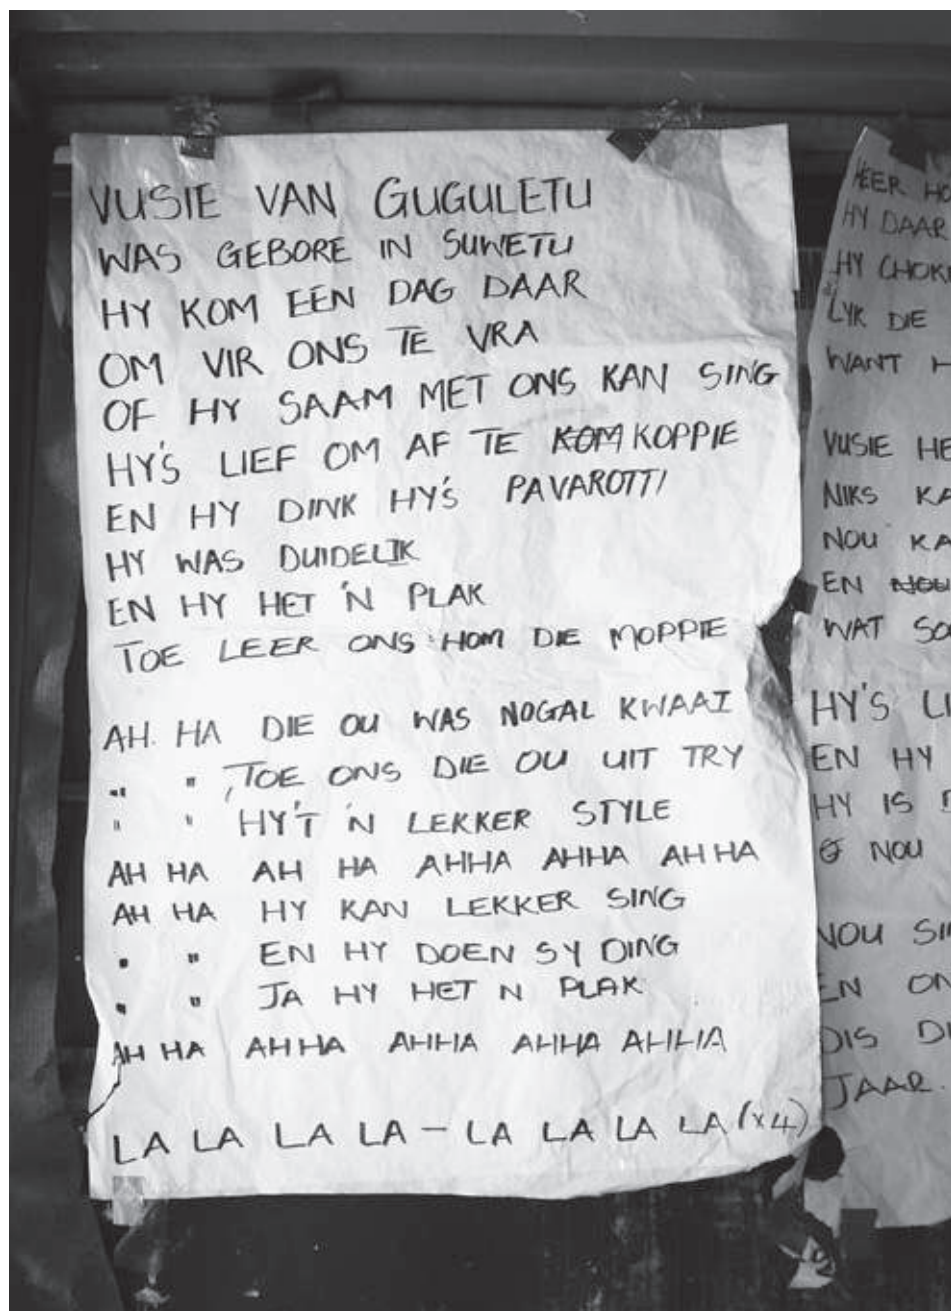 VUSIE VAN GUGULETU
WAS GEBORE IN SUWETU
HY KOM EEN DAG DAAR
OM VIR ONS TE VRA
OF HY SAAM MET ONS KAN SING
HY'S LIEF OM AF TE KOM KOPPIE
EN HY DINK HY'S PAVAROTTI
HY WAS DUIDELIK
EN HY HET 'N PLAK
TOE LEER ONS HOM DIE MOPPIE
AH. HA DIE OU WAS NOGAL KWAAI
" " TOE ONS DIE OU UIT TRY
" " HY'T 'N LEKKER STYLE
AH HA AH HA AHHA AHHA AHHA
AH HA HY KAN LEKKER SING
" " EN HY DOEN SY DING
" " JA HY HET N PLAK
AH HA AHHA AHHA AHHA AHHA
LA LA LA LA – LA LA LA LA (x4)
HEER
HY DAAR
HY
LYK DIE
WANT
VUSIE
NIKS
NOU
EN NOU
WAT
HY'S
EN HY
HY IS
NOU
NOU
EN
DIS
JAAR.